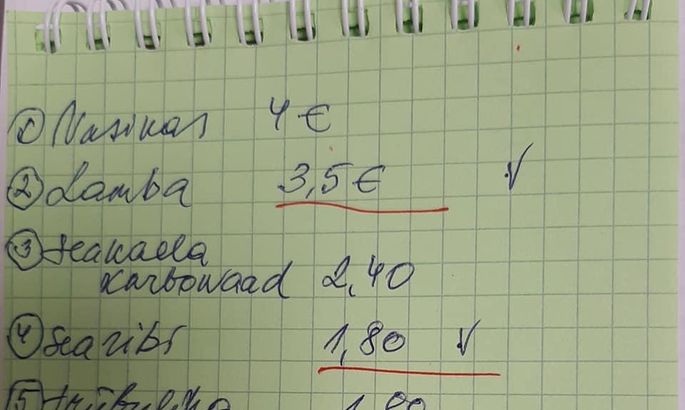 ① Vasikas 4 €
② Lamba 3,5 € V
③ Seakaela
karbonaad 2,40
④ Searibi 1,80 V
⑤